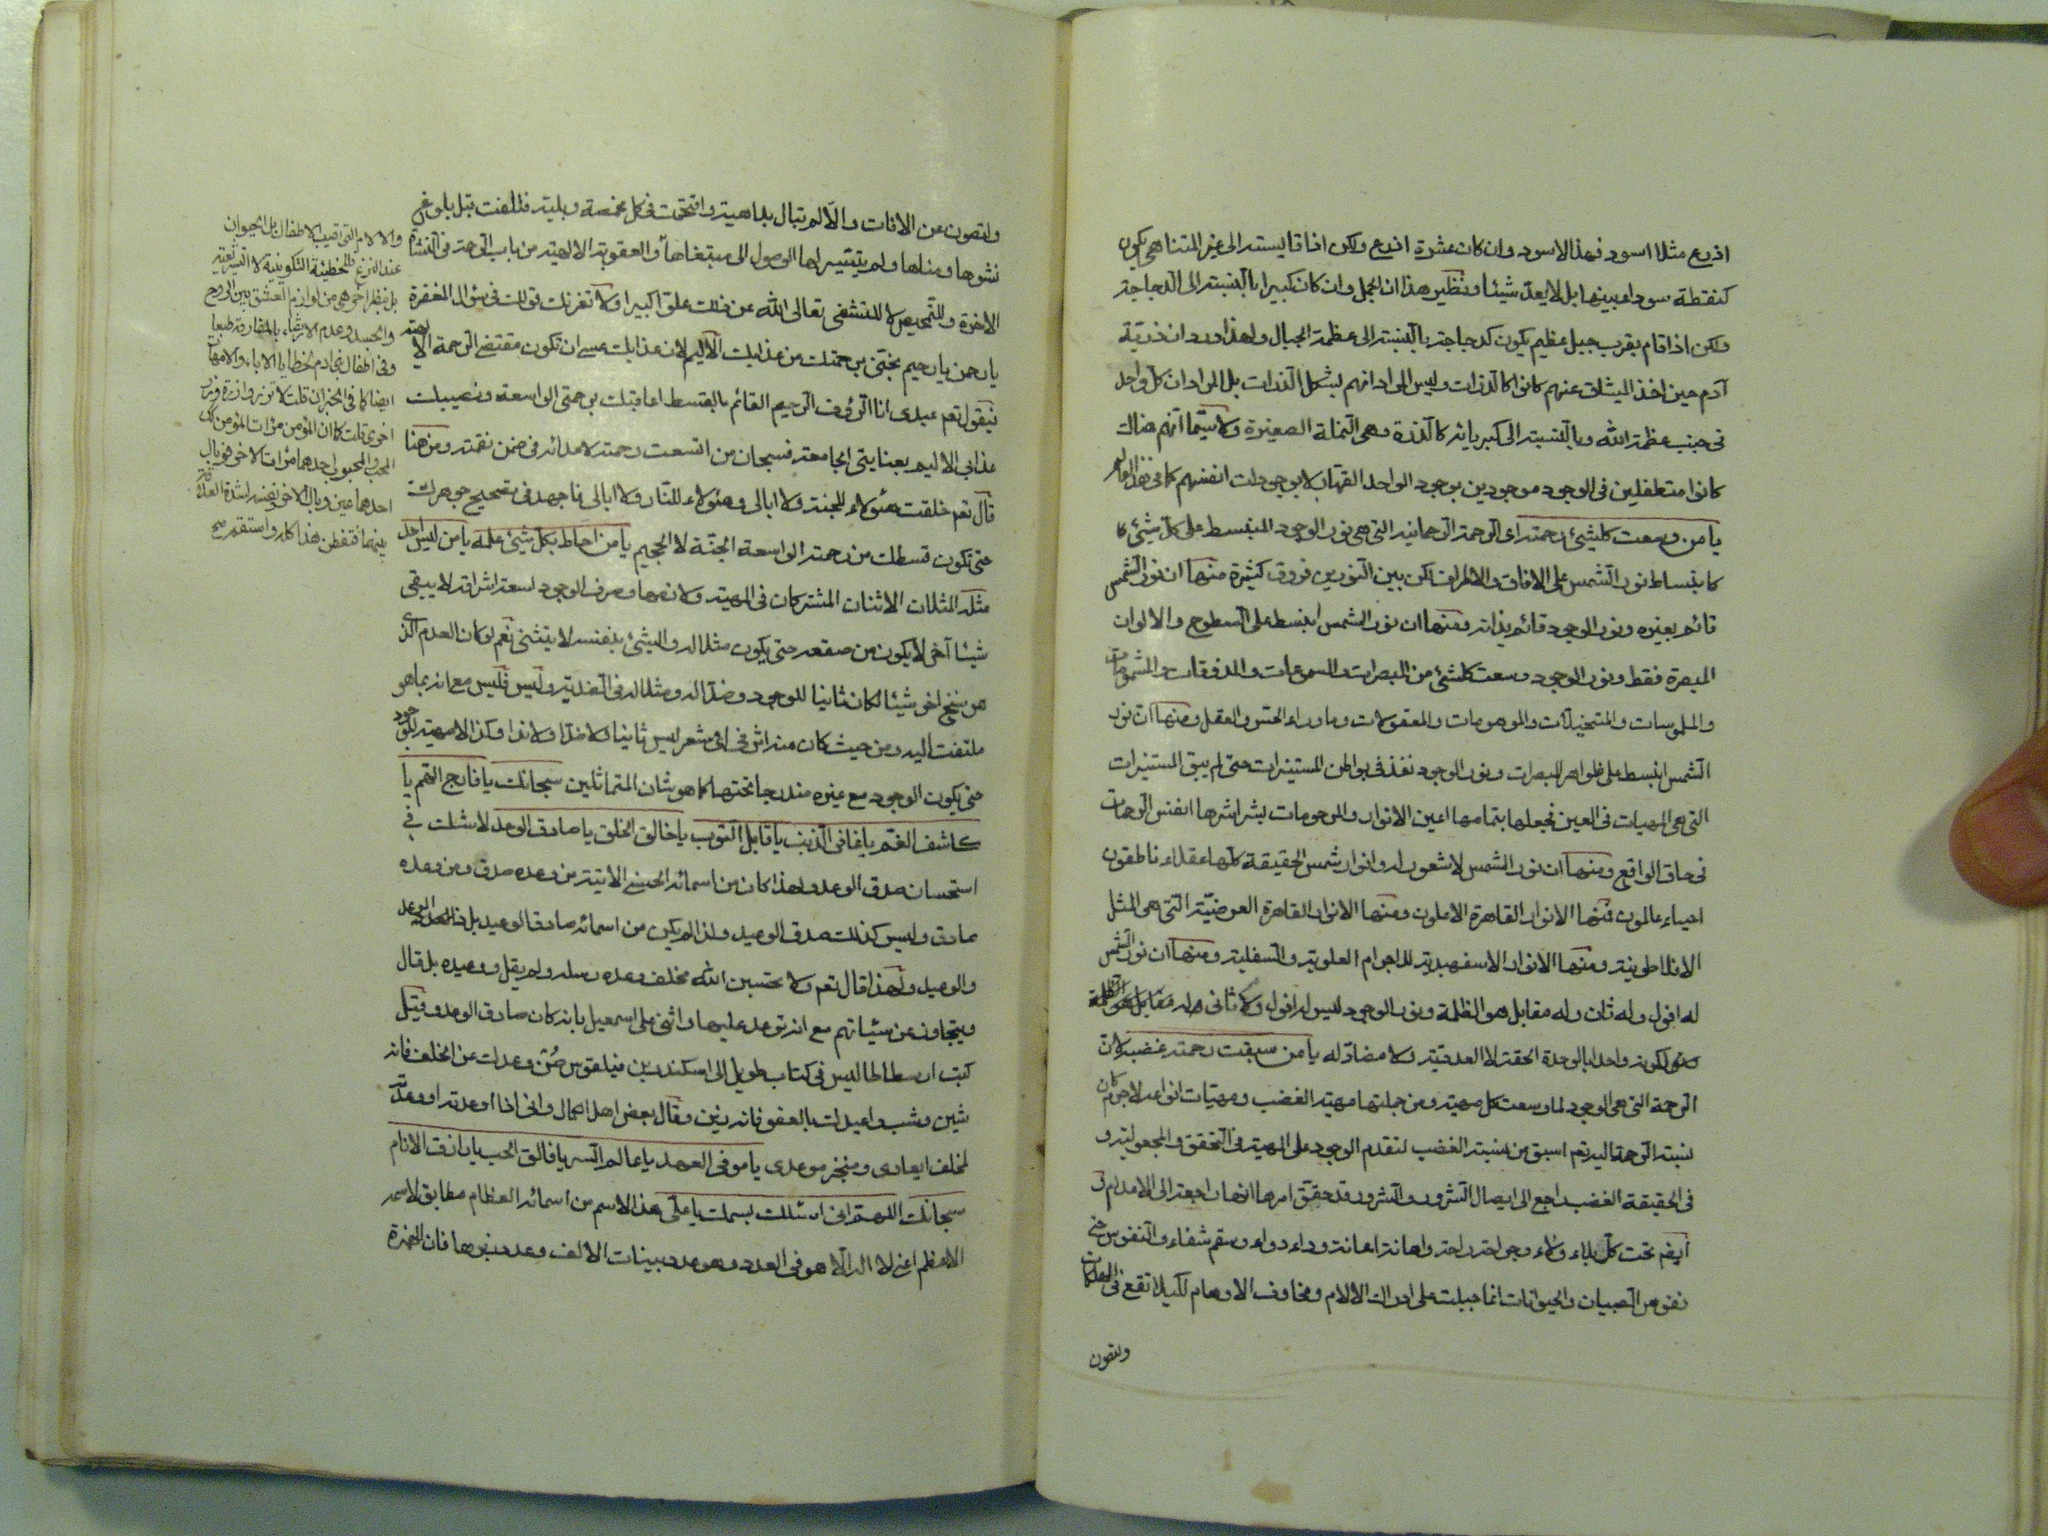 اذرع مثلا اسود فهذا الاسود وان كان عشرة اذرع ولكن اذا قايسته الى غير المتناهى يكون
كنقطة سوداء بينها بل لا يعد شيئا ونظير هذا ان الجمل وان كان كبيرا بالنسبة الى الدجاجة
ولكن اذا قام بقرب جبل عظيم يكون كدجاجة بالنسبة الى عظمة الجبال ولهذا ورد ان ذرية
آدم حين اخذ الميثاق عنهم كانوا كالذرات وليس المراد انهم بشكل الذرات بل المراد ان كل واحد
فى جنب عظمة الله وبالنسبة الى كبريائه كالذرة وهى النملة الصغيرة ولا سيما انهم هناك
كانوا متطفلين فى الوجود موجودين بوجود الواحد القهار لا بوجودات انفسهم كما فى هذا العالم
يا من وسعت كلشيئ رحمته اى الرحمة الرحمانية التى هى نور الوجود المنبسط على كل شيئ
كانبساط نور الشمس على الافاق والاطراف لكن بين النورين فروق كثيرة منها ان نور الشمس
قائم بغيره ونور الوجود قائم بذاته ومنها ان نور الشمس انبسط على السطوح والالوان
المبصرة فقط ونور الوجود وسعت كلشئ من المبصرات والمسموعات والمذوقات والمشمومات
والملموسات والمتخيلات والموهومات والمعقولات وما وراء الحس والعقل ومنها ان نور
الشمس انبسط على ظواهر المبصرات ونور الوجود نفذ فى بواطن المستنيرات حتى لم يبق المستنيرات
التى هى المهيات فى العين فجعلها بتمامها عين الانوار والمرحومات بشراشرها انفس الرحمات
فى حاق الواقع ومنها ان نور الشمس لا شعور له وانوار شمس الحقيقة كلها عقلاء ناطقون
احياء عالمون فمنها الانوار القاهرة الاعلون ومنها الانوار القاهرة العرضية التى هى المثل
الافلاطونية ومنها الانوار الاسفهبدية للاجرام العلوية والسفلية ومنها ان نور الشمس
له افول وله ثان وله مقابل هو الظلمة ونور الوجود ليس له افول ولا ثانى له
لكونه واحدا بالوحدة الحقة لا العددية ولا مضاد له يا من سبقت رحمته غضبه لان
الرحمة التى هى الوجود لما وسعت كل مهية ومن جملتها مهية الغضب ومهيات انواعه لا جرم كان
نسبة الرحمة اليه تعم اسبق من نسبة الغضب لتقدم الوجود على المهية فى التحقق والمجعولية و
فى الحقيقة الغضب راجع الى ايصال الشرور والشرور قد حقق امرها انها راجعة الى الاعدام
ايضم تحت كل بلاء ولاء وجراحة راحة واهانة اعانة وداء دواء وسقم شفاء والنفوس حتى
نفوس الصبيان والحيوانات انما جبلت على ادراك الالام ومخاوف الاوهام لكيلا تقع فى المهلكات
ولتصون
ولتصون عن الافات والا لم تبال بداهية واقتحمت فى كل مخمصة وبلية فتلفت قبل بلوغ
نشوها ومناها ولم يتيسر لها الوصول الى مبتغاها والعقوبة الالهية من باب الرحمة فى النشأة
الاخرة وللتمحيص لا للتشفى تعالى الله عن ذلك علوا كبيرا ولا تغرنك قولك فى سؤال المغفرة
يا رحمن يا رحيم نجنى برحمتك من عذابك الاليم لان عذابك عسى ان تكون مقتضى الرحمة الالهية
فيقول تعم عبدى انا الرؤف الرحيم القائم بالقسط اعاقبك برحمتى الواسعة ونصيبك
عذابى الاليم بعنايتى الجامعة فسبحان من اتسعت رحمته لاعدائه فى ضمن نقمته ومن هنا
قال تعم خلقت هؤلاء للجنة ولا ابالى وهؤلاء للنار ولا ابالى فاجهد فى تصحيح جوهرك
حتى تكون قسطك من رحمته الواسعة الجنة لا الجحيم يا من احاط بكل شيئ علمه يا من ليس احد
مثله المثلان الاثنان المشتركان فى المهية ولازمها وصرف الوجود لسعة اشراقه لا يبقى
شيئا آخر لا يكون من صقعه حتى يكون مثلا له والشيئ بنفسه لا يتثنى نعم لو كان العدم الذى
من سنخ اخر شيئا لكان ثانيا للوجود وضدا له ومثلا له فى الضدية وليس فليس مع انه بما هو
ملتفت اليه ومن حيث كان منه اثر فى اى مشعر ليس ثانيا ولا ضدا ولا ندا وكذا لا مهية للوجود
حتى يكون الوجود مع غيره مندرجا تحتها كما هو شان المتماثلين سبحانك يا فارج الهم يا
كاشف الغم يا غافر الذنب يا قابل التوب يا خالق الخلق يا صادق الوعد لا شك فى
استحسان صدق الوعد ولهذا كان من اسمائه الحسنى الاتية من وعده صدق ومن وعده
صادق وليس كذلك صدق الوعيد ولذا لم يكن من اسمائه صادق الوعيد بل
والوعيد ولهذا قال تعم ولا تحسبن الله مخلف وعده رسله ولم يقل ووعيده بل قال
ويتجاوز عن سيئاتهم مع انه توعد عليها واثنى على اسمعيل بانه كان صادق الوعد وقيل
كتب ارسطاطاليس فى كتاب طويل الى اسكندر بن فيلقوس صن وعدك عن الخلف فانه
شين وشب وعيدك بالعفو فانه زين وقال بعض اهل الكمال وانى اذا اوعدته او وعدته
لمخلف ايعادى ومنجز موعدى يا موفى العهد يا عالم السر يا فالق الحب يا رازق الانام
سبحانك اللهم انى اسئلك بسمك يا على هذا الاسم من اسمائه العظام مطابق لاسمه
الاعظم اعنى لا اله الا هو فى العدد وهو عدد بينات الالف وعدد زبرها فان الهمزة
والالام التى تصيب الاطفال بل الحيوان
عند النزع للخطيئة التكوينية لا التشريعية
بل بنظر آخر هى من لوازم العشق بين الروح
والجسد وعدم الارتضاء بالمفارقة طبعا
وفى اطفال بنى ادم لخطايا الاباء والامهات
ايضا كما فى الخبر ان قلت لا تزر وازرة وزر
اخرى قلت كما ان المؤمن مرآت المؤمن كك
المحب والمحبوب احدهما مرآت الاخر فوبال
احدهما عين وبال الاخر بنفسه لشدة العلاقة
بينهما فتفطن هذا كله واستقم صح